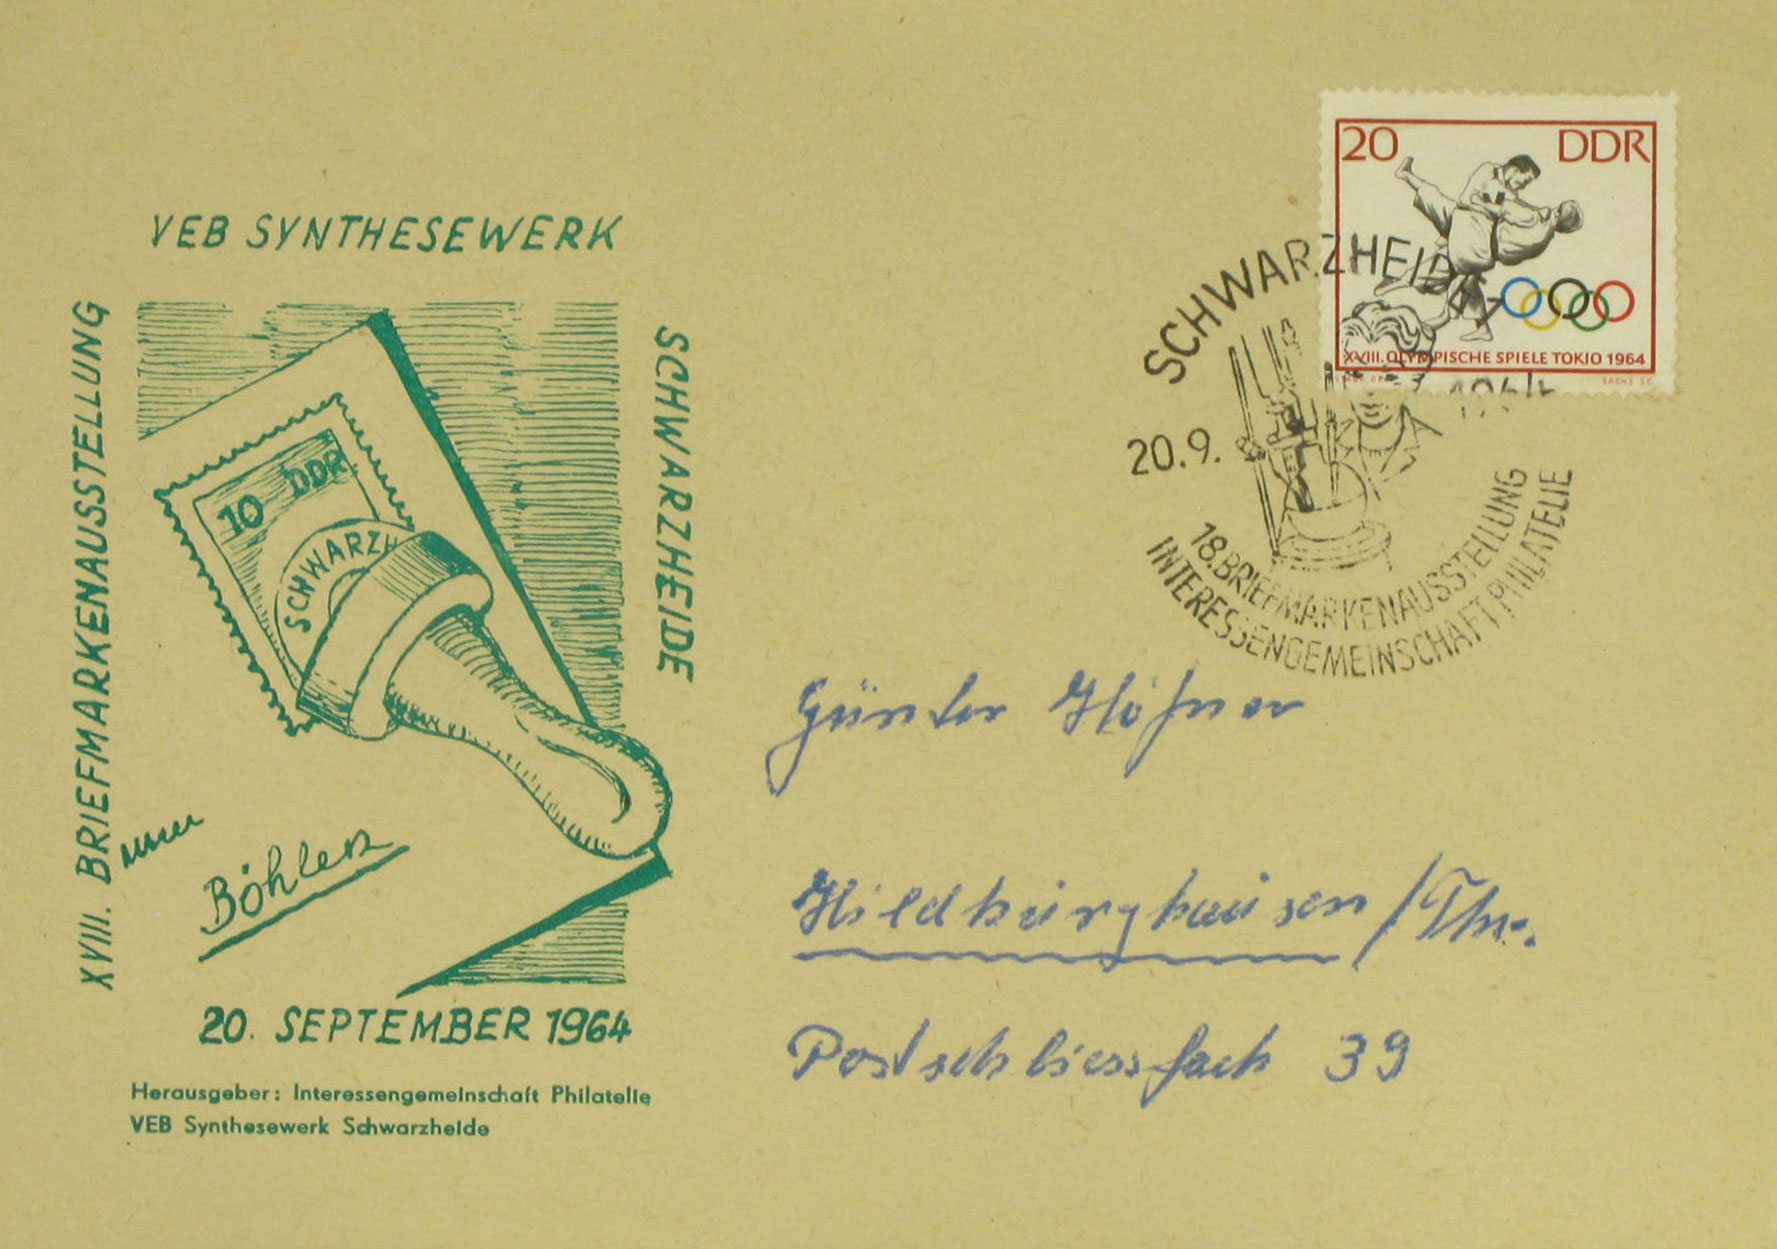 VEB SYNTHESEWERK
SCHWARZHEIDE
XVIII. BRIEFMARKENAUSSTELLUNG
10 DDR
SCHWARZH
Böhlen
20. SEPTEMBER 1964
Herausgeber: Interessengemeinschaft Philatelie
VEB Synthesewerk Schwarzheide
20 DDR
XVIII. OLYMPISCHE SPIELE TOKIO 1964
SACHS SC.
SCHWARZHEIDE 1
20.9. 1964
18. BRIEFMARKENAUSSTELLUNG
INTERESSENGEMEINSCHAFT PHILATELIE
Günter
Hildburghausen / Thür.
Postschliessfach 39